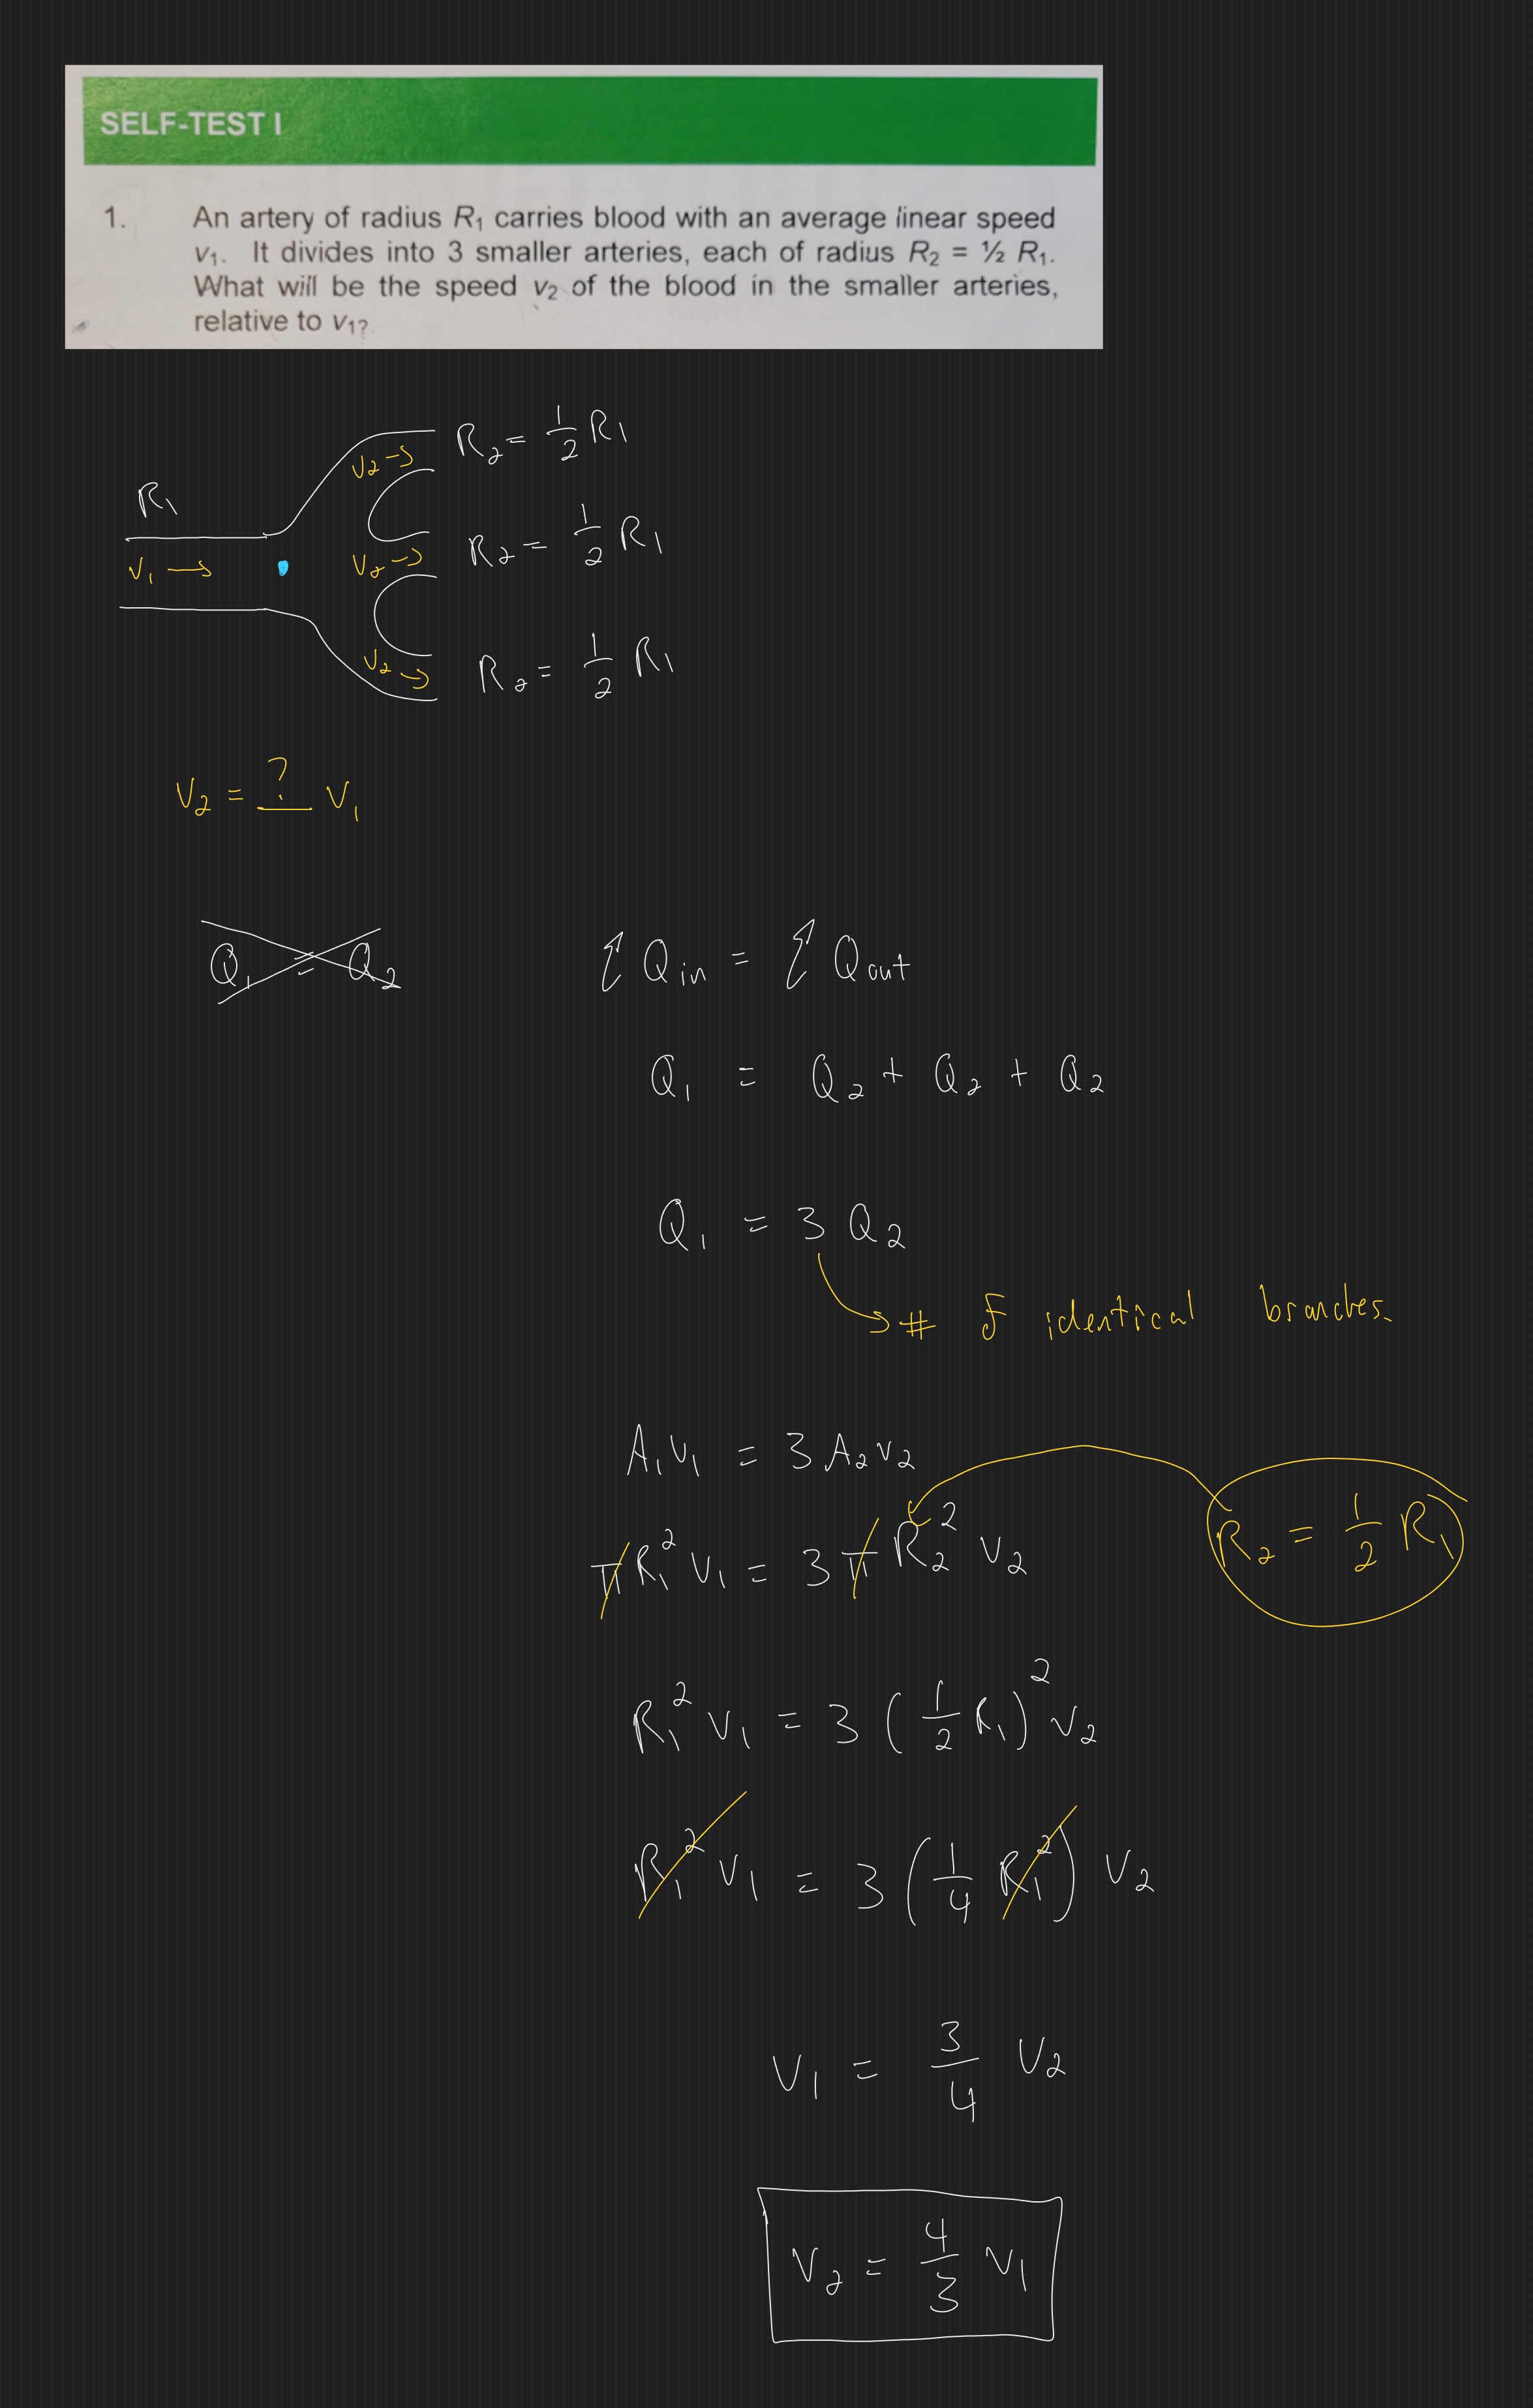 SELF-TEST I
1. An artery of radius R₁ carries blood with an average linear speed
v₁. It divides into 3 smaller arteries, each of radius R₂ = ½ R₁.
What will be the speed v₂ of the blood in the smaller arteries,
relative to v₁?
R₂ = 1/2 R₁
v₂ →
R₁
v₁ →
v₂ →
R₂ = 1/2 R₁
v₂ →
R₂ = 1/2 R₁
v₂ = ? v₁
Q₁ = Q₂
Σ Q in = Σ Q out
Q₁ = Q₂ + Q₂ + Q₂
Q₁ = 3 Q₂
→ # of identical branches.
A₁v₁ = 3 A₂v₂
πR₁² v₁ = 3 π R₂² v₂
R₂ = 1/2 R₁
R₁² v₁ = 3 (1/2 R₁)² v₂
R₁² v₁ = 3 (1/4 R₁²) v₂
v₁ = 3/4 v₂
v₂ = 4/3 v₁